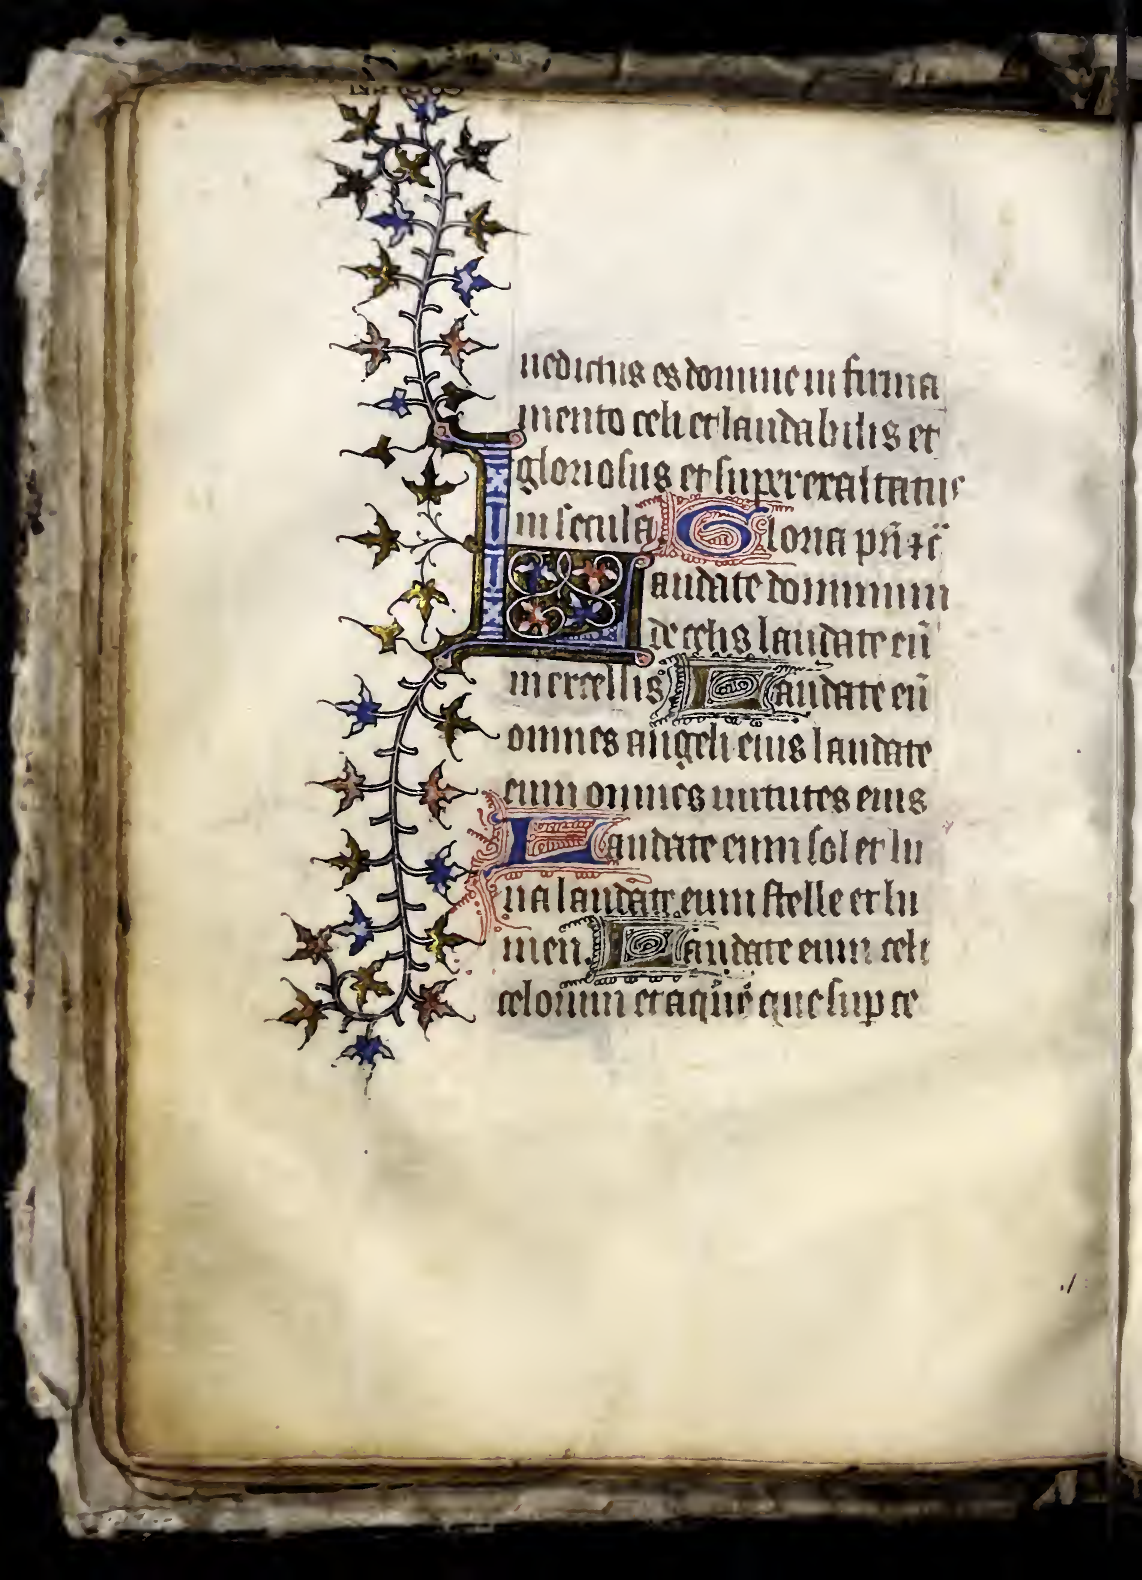 nedictus es domine in firma
mento celi et laudabilis et
gloriosus et superexaltatus
in secula. Gloria pr̄i ⁊ c̄
Laudate dominum
de celis laudate eū
in excelsis Laudate eū
omnes angeli eius laudate
eum omnes uirtutes eius
Laudate eum sol et lu
na laudate eum stelle et lu
men. Laudate eum celi
celorum et aque que sup ce